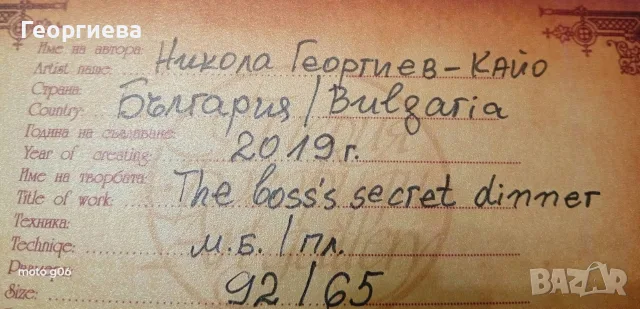 Георгиева
Име на автора:
Artist name: Никола Георгиев - КАЙО
Страна:
Country: България / Bulgaria
Година на създаване:
Year of creating: 2019 г.
Име на творбата:
Title of work: The boss's secret dinner
Техника:
Techniqe: м.б. / пл.
moto g06
Size: 92 / 65
BAZAR